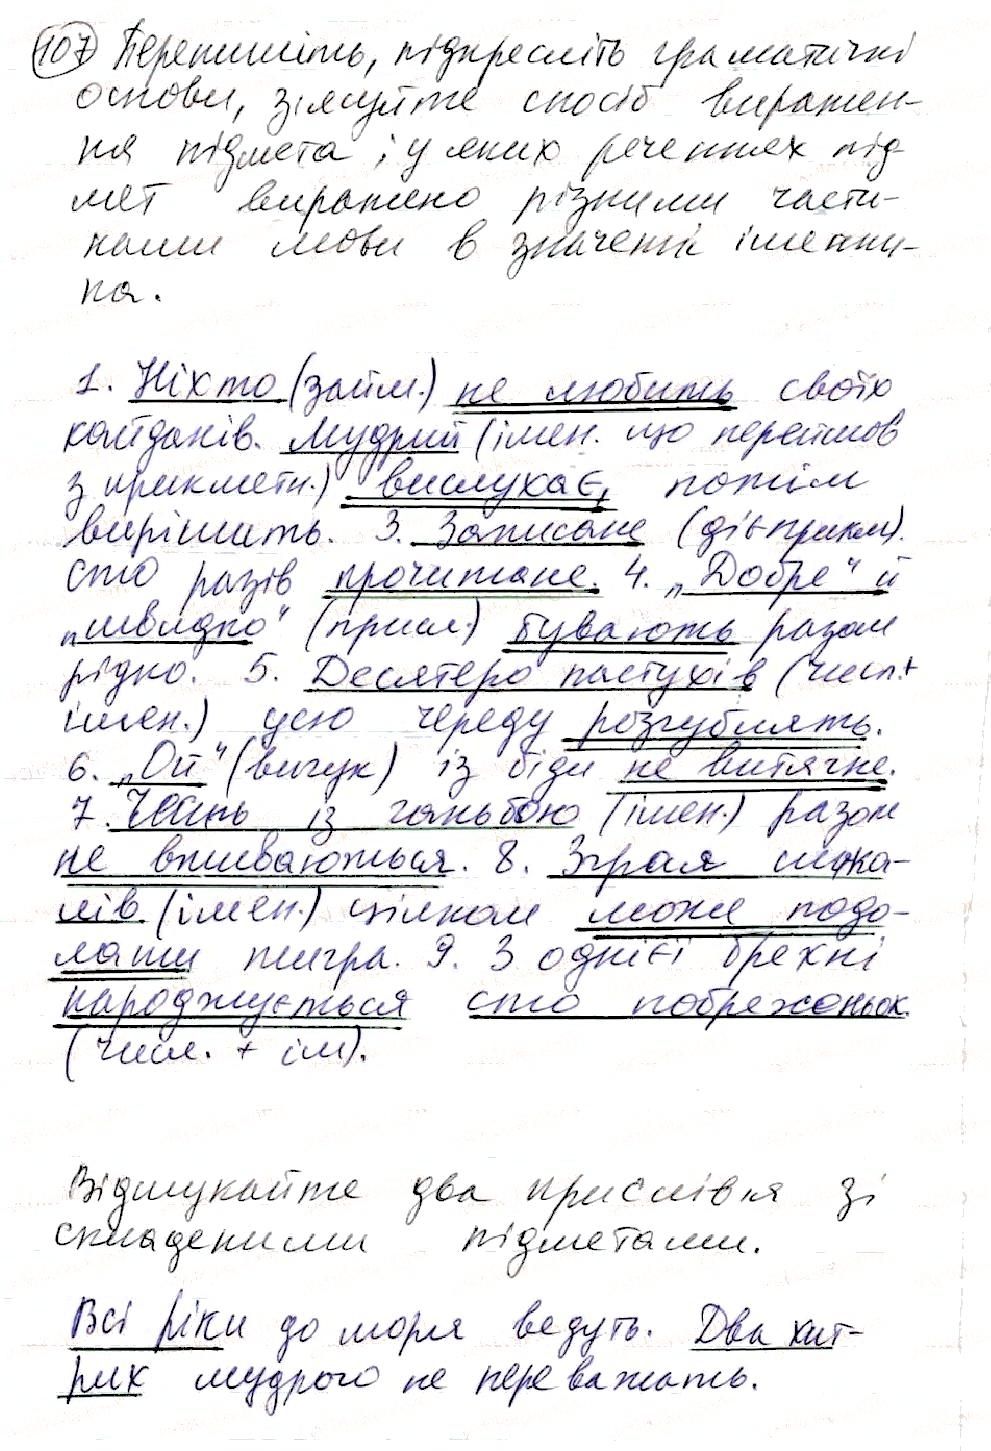 107 Перепишіть, підкресліть граматичні
основи, з'ясуйте спосіб виражен-
ня підмета; у яких реченнях під-
мет виражено різними части-
нами мови в значенні іменни-
ка.
1. Ніхто (займ.) не любить своїх
кайданів. Мудрий (імен. що перейшов
з прикметн.) вислухає, потім
вирішить. 3. Записане (дієприкм).
сто разів прочитане. 4. „Добре" й
„швидко" (присл.) бувають разом
рідко. 5. Десятеро пастухів (числ.+
імен.) усю череду розгублять.
6. „Ой" (вигук) із біди не витягне.
7. Честь із ганьбою (імен.) разом
не вживаються. 8. Зграя шака-
лів (імен.) цілком може подо-
лати тигра. 9. З однієї брехні
народжується сто побрехеньок.
(числ. + ім).
Відшукайте два прислів'я зі
складеними підметами.
Всі ріки до моря ведуть. Два хит-
рих мудрого не переважать.